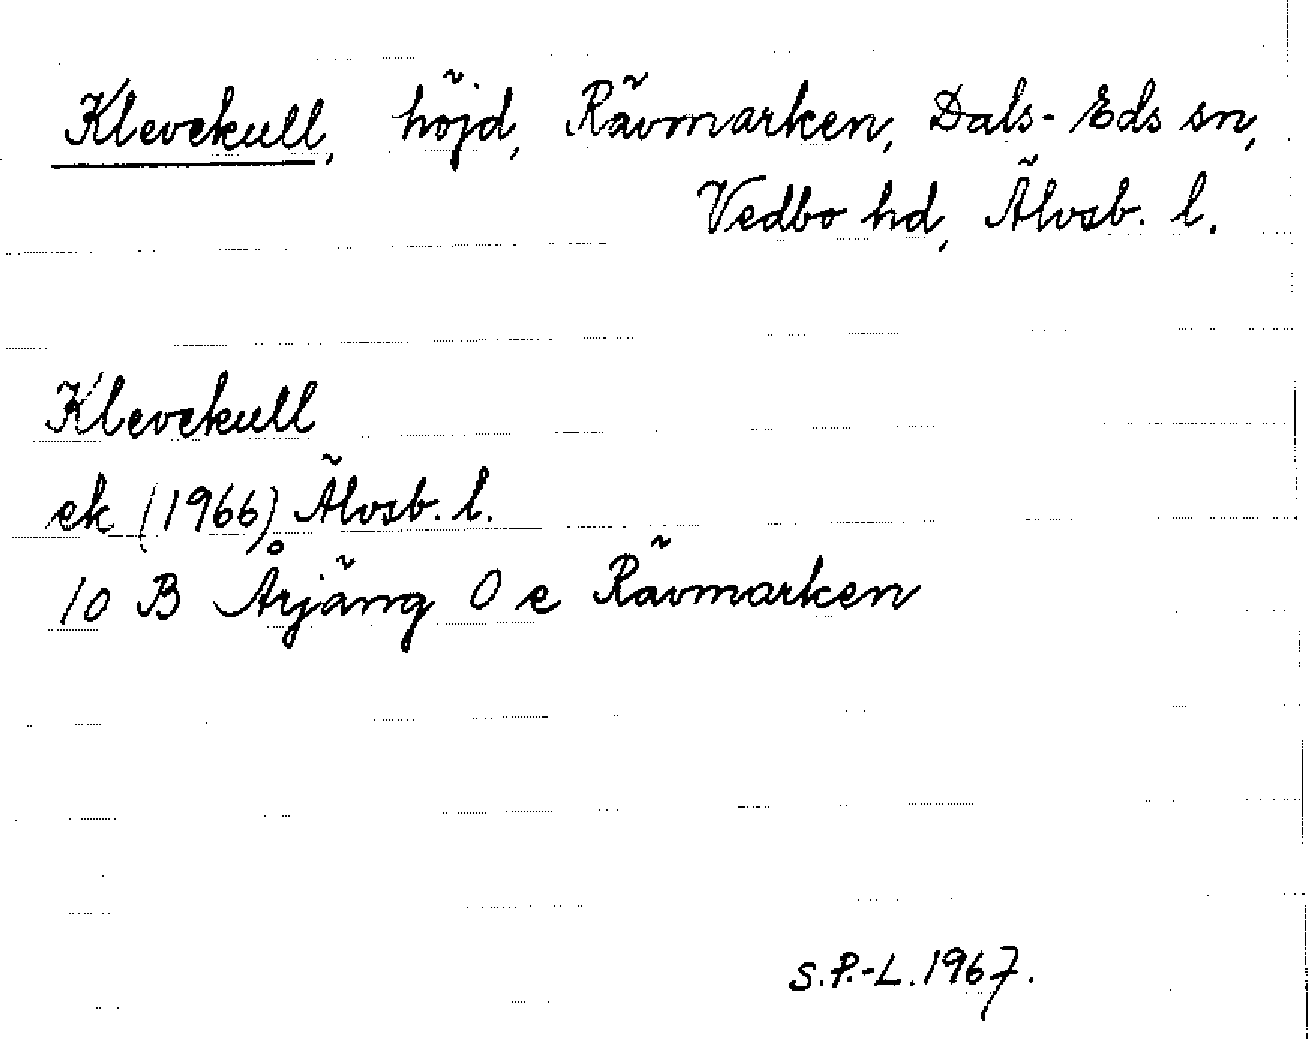 Klevekull, höjd, Rävmarken, Dals-Eds sn,
Vedbo hd, Älvsb. l.
Klevekull
ek (1966) Älvsb. l.
10 B Årjäng O e Rävmarken
S.P.-L. 1967.